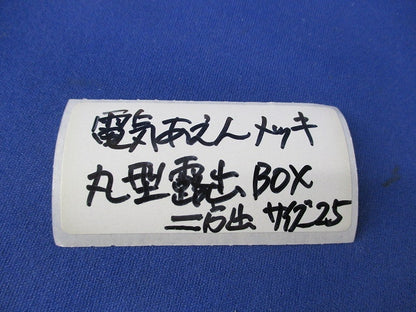 電気あえんメッキ
丸型露出BOX
二方出 サイズ25